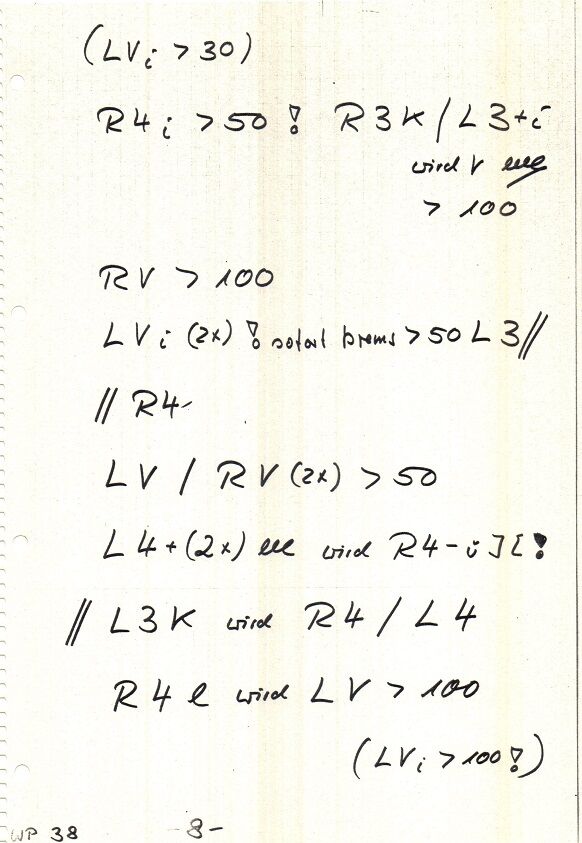 (LVi > 30)
R4i > 50 ! R3K / L3+i
wird V eng
> 100
RV > 100
LVi (2x) ! sofort brems > 50 L3 //
// R4-
LV / RV (2x) > 50
L4+ (2x) lll wird R4- ü ] [ !
// L3K wird R4 / L4
R4 l wird LV > 100
(LVi > 100 !)
WP 38 -8-